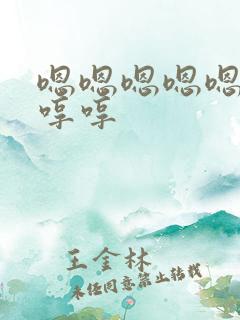 嗯嗯嗯嗯嗯
哼哼
王金林
未经同意禁止转载